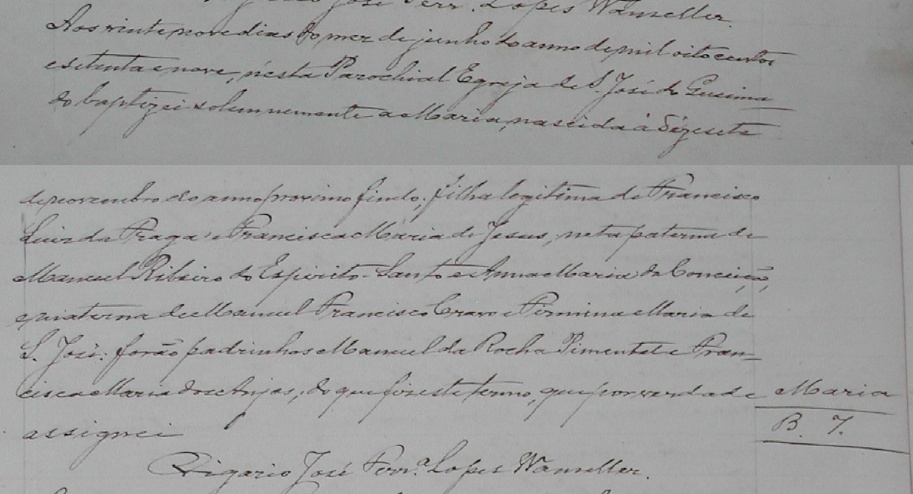 José Ferr. Lopes Wanzeller.
Aos vinte nove dias do mez de junho do anno de mil oitocentos
e setenta e nove, n'esta Parochial Egreja de S. José do Queima
do baptizei solemnemente a Maria, nascida á dezesete
de novembro do anno proximo findo, filha legitima de Francisco
Luiz da Fraga e Francisca Maria de Jesus, neta paterna de
Manuel Ribeiro do Espirito-Santo e Anna Maria da Conceição,
e materna de Manuel Francisco Cravo e Firmina Maria de
S. José: forão padrinhos Manuel da Rocha Pimentel e Fran-
cisca Maria dos Anjos, do que fiz este termo, que por verdade
assignei
Vigario José Ferr.ª Lopes Wanzeller.
Maria
B. 7.